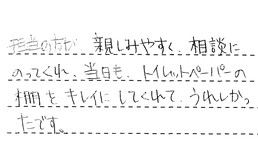 担当の方が、親しみやすく、相談に
のってくれ、当日も、トイレットペーパーの
棚をキレイにしてくれて、うれしかっ
たです。